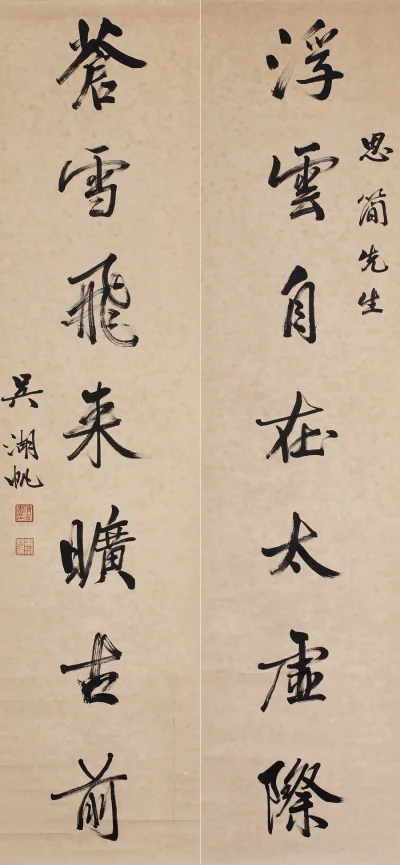 思簡先生
浮雲自在太虛際
蒼雪飛来曠古前
吳湖帆